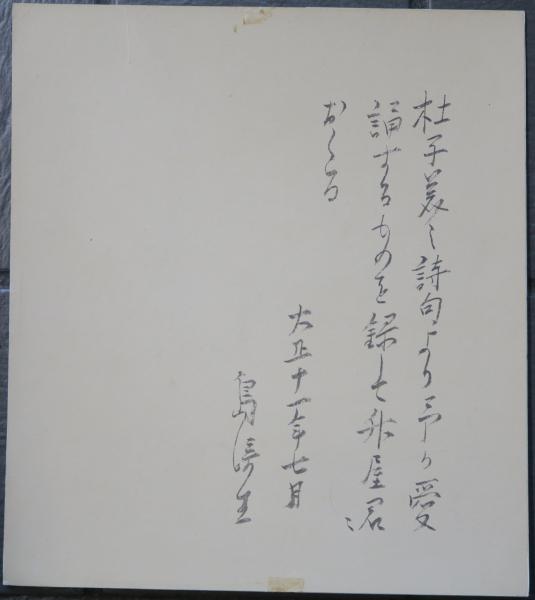 杜子美之詩句より予の愛
誦するものを録して舟屋君に
おくる
大正十一年七月
島崎生